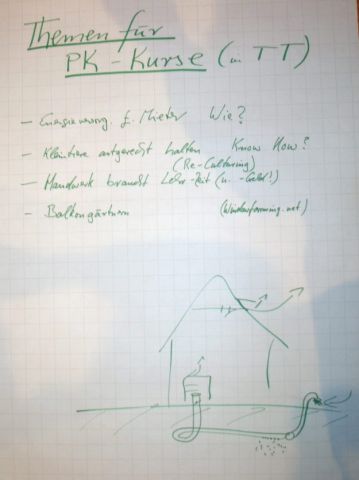 Themen für
PK-Kurse (in TT)
- Energieversorg. f. Mieter Wie?
- Kleintiere artgerecht halten Know How?
(Re-Culturing)
- Handwerk braucht Lehr-Zeit (u. -Geld!)
- Balkongärtnern (Windowfarming.net)